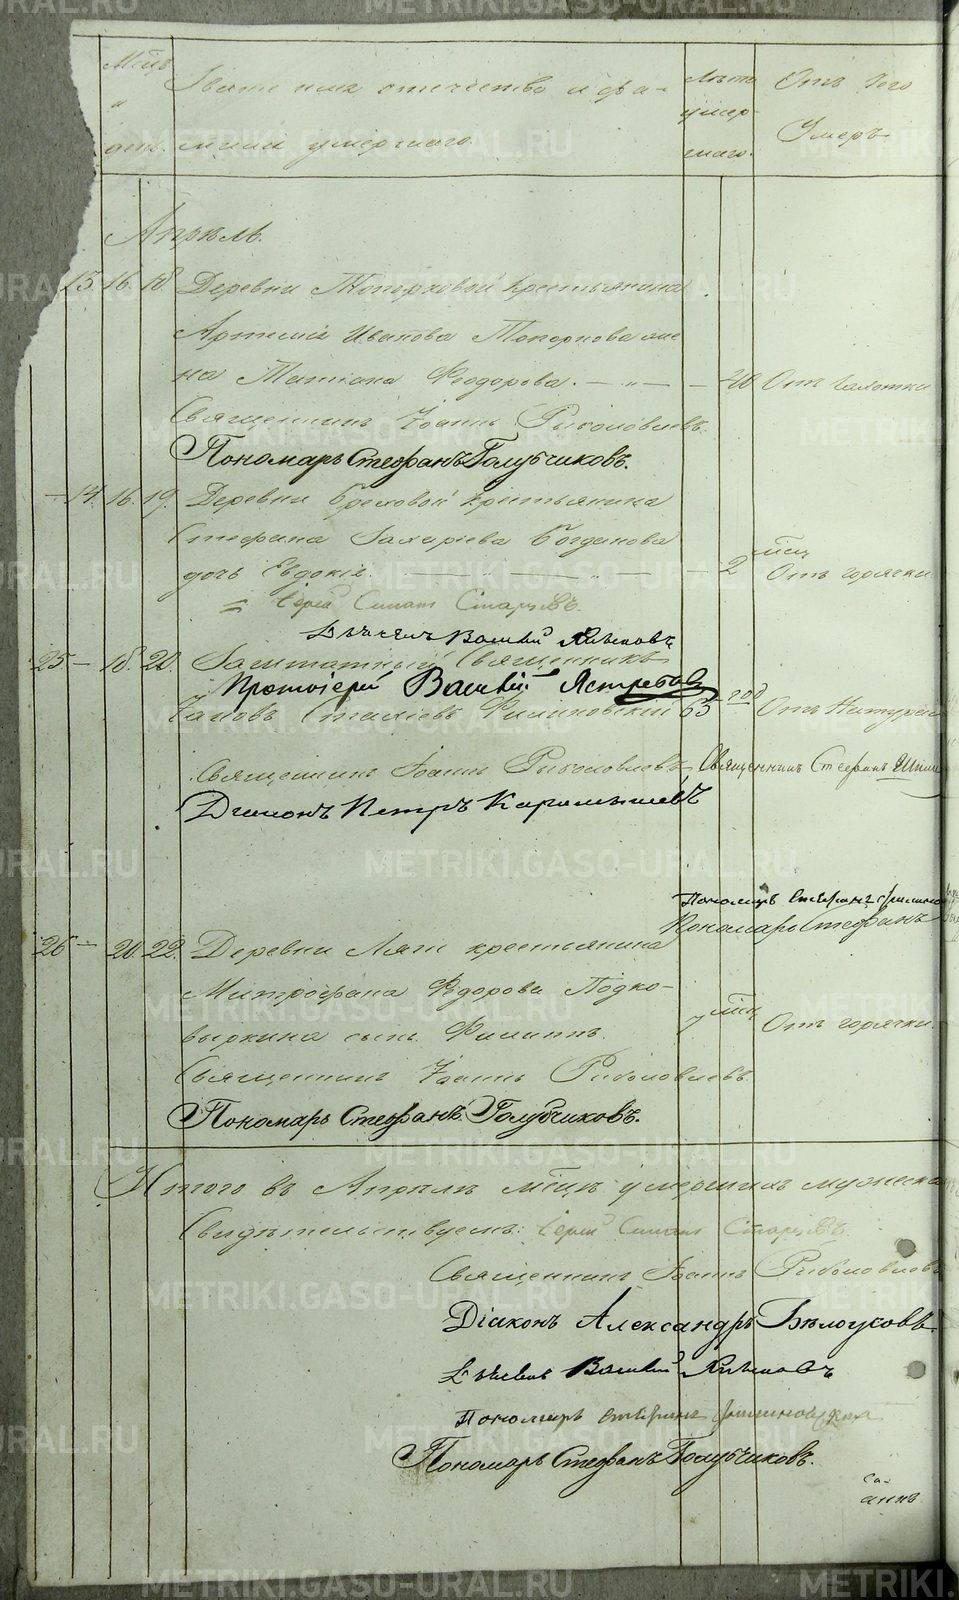 Мѣцъ и дни. Званіе имя отечество и фа- Лѣта Отъ чего
милія умершаго. умер- Умеръ
шаго.
Апрѣль.
15. 16. 18. Деревни Топорковой крестьянина
Артемія Иванова Топоркова же-
на Татіана Феодорова. — 40 Отъ чахотки
Священникъ Іоаннъ Рыболовлевъ.
Пономарь Стефанъ Голубчиковъ.
— 14. 16. 19. Деревни крестьянина
Стефана Захаріева Богданова
дочь Евдокія. — 2 мѣц Отъ горячки.
Іерей Симонъ Старцевъ.
Василій
25 — 18. 20. Заштатный Священникъ
Протоіерей Василій Ястребовъ
Іаковъ 65 год Отъ Натураль
Священникъ Іоаннъ Рыболовлевъ, Священникъ Стефанъ
Діаконъ Петръ Карамышевъ
Пономарь Стефанъ
Пономарь Стефанъ
26 — 20. 22. Деревни Ляги крестьянина
Митрофана Фдорова Подко-
выркина сынъ Филиппъ. 7 мѣц Отъ горячки.
Священникъ Іоаннъ Рыболовлевъ.
Пономарь Стефанъ Голубчиковъ.
Итого въ Апрѣлѣ мѣцѣ умершихъ мужеска
Свидѣтельствуемъ: Іерей Симонъ Старцевъ.
Священникъ Іоаннъ Рыболовлевъ
Діаконъ Александръ Бѣлоусовъ
Василій
Пономарь Стефанъ
Пономарь Стефанъ Голубчиковъ.
METRIKI.GASO-URAL.RU